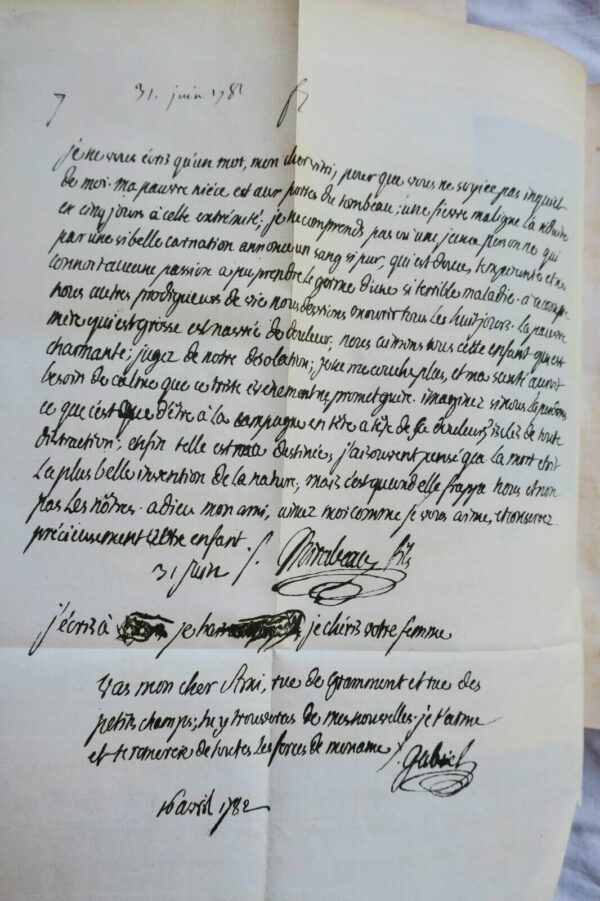 7 31. juin 178
je ne vous écris qu'un mot, mon cher ami, pour que vous ne soyiez pas inquiet
de moi. ma pauvre niéce est aux portes du tombeau; une fievre maligne la réduite
en cinq jours à cette extrémité; je ne comprends pas où une jeune personne qui
par une si belle carnation annonce un sang si pur, qui est douce, temperante et ne
connoit aucune passion a pu prendre le germe d'une si terrible maladie. a ce compte
nous autres prodigueurs de vie nous devrions mourir tous les huit jours. la pauvre
mère qui est grosse est navrée de douleur, nous aimons tous cette enfant qui est
charmante; jugez de notre désolation; je ne me couche plus, et ma santé auroit
besoin de calme que ce triste évenement ne promet guère. imaginez si nous la perdons
ce que c'est que d'être à la campagne en tête a tête de sa douleur, isolés de toute
distraction; enfin telle est ma destinée, j'ai souvent pensé que la mort etoit
la plus belle invention de la nature, mais c'est quand elle frappe nous et non
pas les nôtres. adieu mon ami, aimez moi comme je vous aime, et conservez
précieusement votre enfant. Mirabeau fils
31 juin
j'écris à je je chéris votre femme
Vas mon cher Ami, rue de Grammont et rue des
petits champs; tu y trouveras de mes nouvelles. je t'aime
et te remercie de toutes les forces de mon ame. Gabriel
16 avril 1782